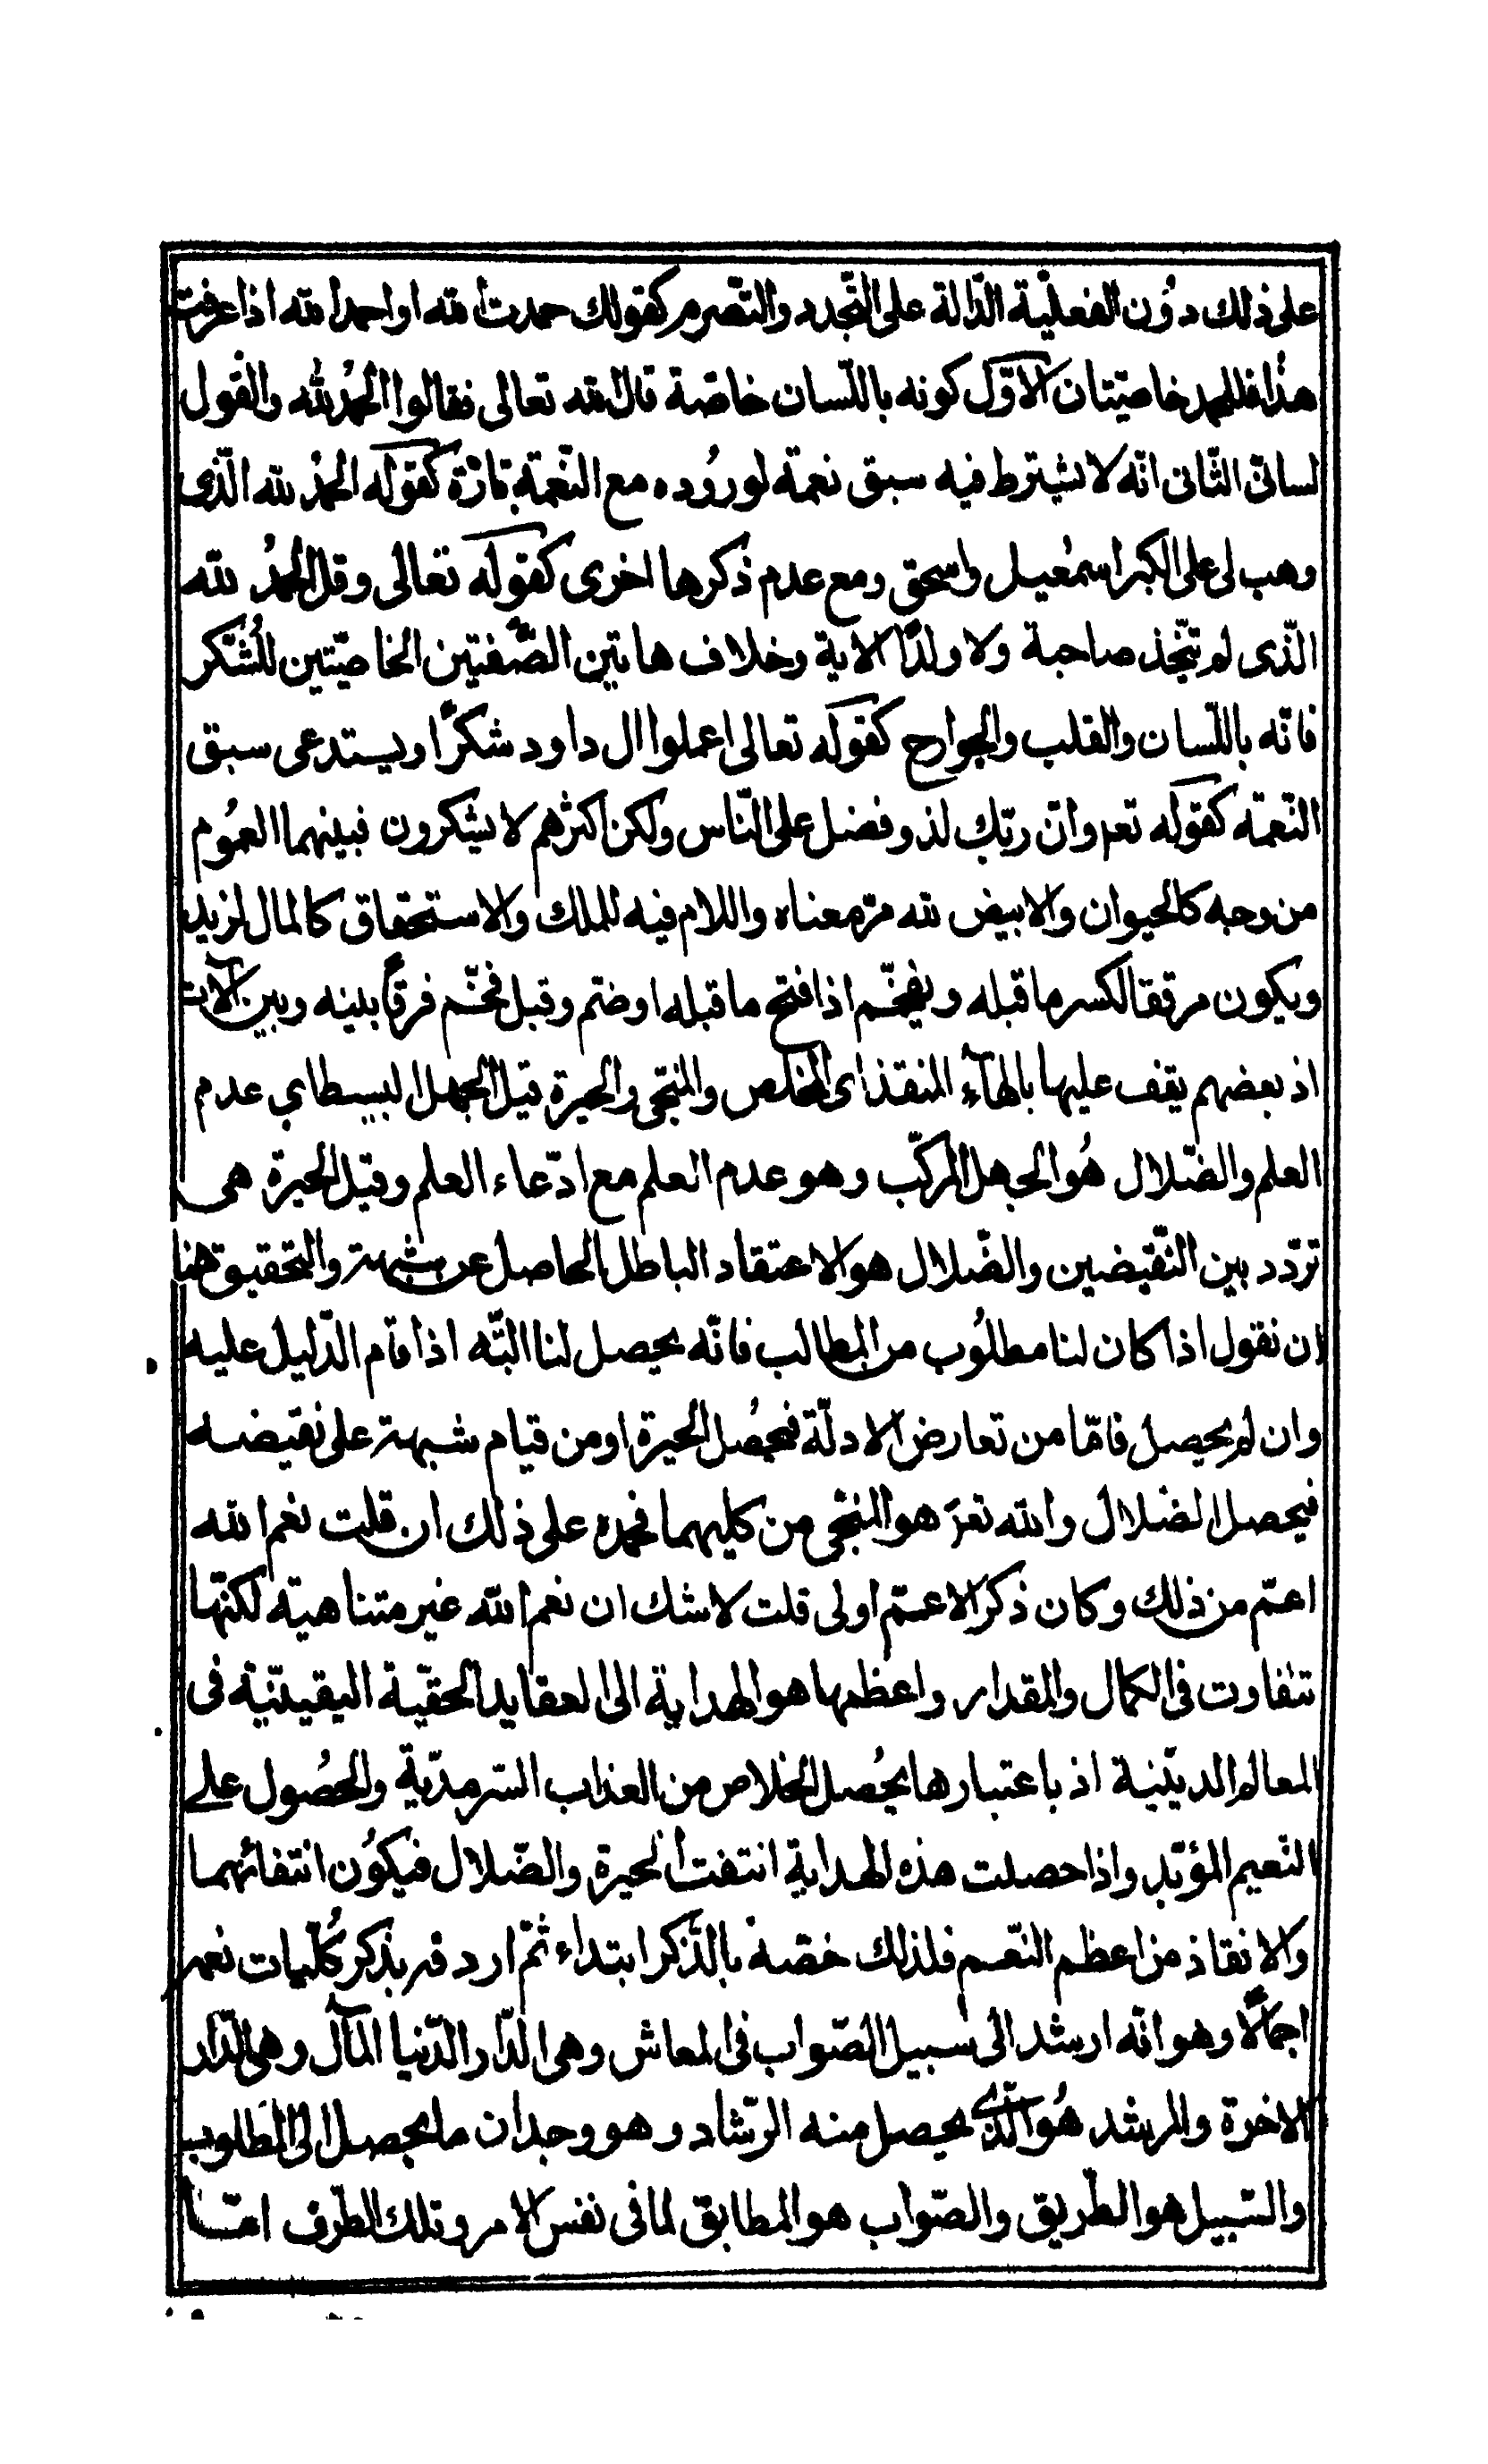 على ذلك دون الفعليّة الدّالة على التّجدد والتّصرم كقولك حمدت الله او احمد الله اذا عرفت
هذا فللحمد خاصيّتان الاوّل كونه باللّسان خاصّة قال الله تعالى فقالوا الحمد لله والقول
لسانىّ الثّانى انّه لا يشترط فيه سبق نعمة لوروده مع النّعمة تارة كقوله الحمد لله الّذى
وهب لى على الكبر اسمعيل واسحق ومع عدم ذكرها اخرى كقوله تعالى وقل الحمد لله
الّذى لم يتّخذ صاحبة ولا ولدًا الاية وخلاف هاتين الصّفتين الخاصّيتين للشّكر
فانّه باللّسان والقلب والجوارح كقوله تعالى اعملوا ال داود شكرًا ويستدعى سبق
النّعمة كقوله تعم وانّ ربّك لذو فضل على النّاس ولكن اكثرهم لا يشكرون فبينهما العموم
من وجه كالحيوان والابيض لله مرّ معناه واللام فيه للملك والاستحقاق كالمال لزيد
ويكون مرققا لكسر ما قبله ويفخّم اذا فتح ما قبله او ضم وقيل فخّم فرقًا بينه وبين الات
اذ بعضهم يقف عليها بالهآء المنقذ اى المخلّص والمنجّى والحيرة قيل الجهل البسيط اي عدم
العلم والضّلال هو الجهل المركّب وهو عدم العلم مع ادّعاء العلم وقيل الحيرة هى
تردّد بين النّقيضين والضّلال هو الاعتقاد الباطل الحاصل عن شبهة والتحقيق هنا
ان نقول اذا كان لنا مطلوب من المطالب فانّه يحصل لنا البتّه اذا قام الدّليل عليه
وان لم يحصل فامّا من تعارض الادلّة فيحصل الحيرة او من قيام شبهة على نقيضه
فيحصل الضلال والله تعم هو المنجّى من كليهما فحمده على ذلك ان قلت نعم الله
اعمّ من ذلك وكان ذكر الاعمّ اولى قلت لا شك ان نعم الله غير متناهية لكنّها
تتفاوت فى الكمال والمقدار واعظمها هو الهداية الى العقايد الحقيّة اليقينيّة فى
المعالم الدينيّة اذ باعتبارها يحصل الخلاص من العذاب السّرمديّة والحصول على
النّعيم المؤبّد واذا حصلت هذه الهداية انتفت الحيرة والضّلال فيكون انتفائهما
والانقاذ من اعظم النّعم فلذلك خصّه بالذّكر ابتداء ثمّ اردفه بذكر كلّيات نعمه
اجمالًا وهو انّه ارشد الى سبيل الصّواب فى المعاش وهى الدّار الدّنيا المآل وهى الدّار
الاخرة والمرشد هو الّذي يحصل منه الرّشاد وهو وجدان ما يحصل الى المطلوب
والسّبيل هو الطّريق والصّواب هو المطابق لما فى نفس الامر وتلك الطّرف امّا